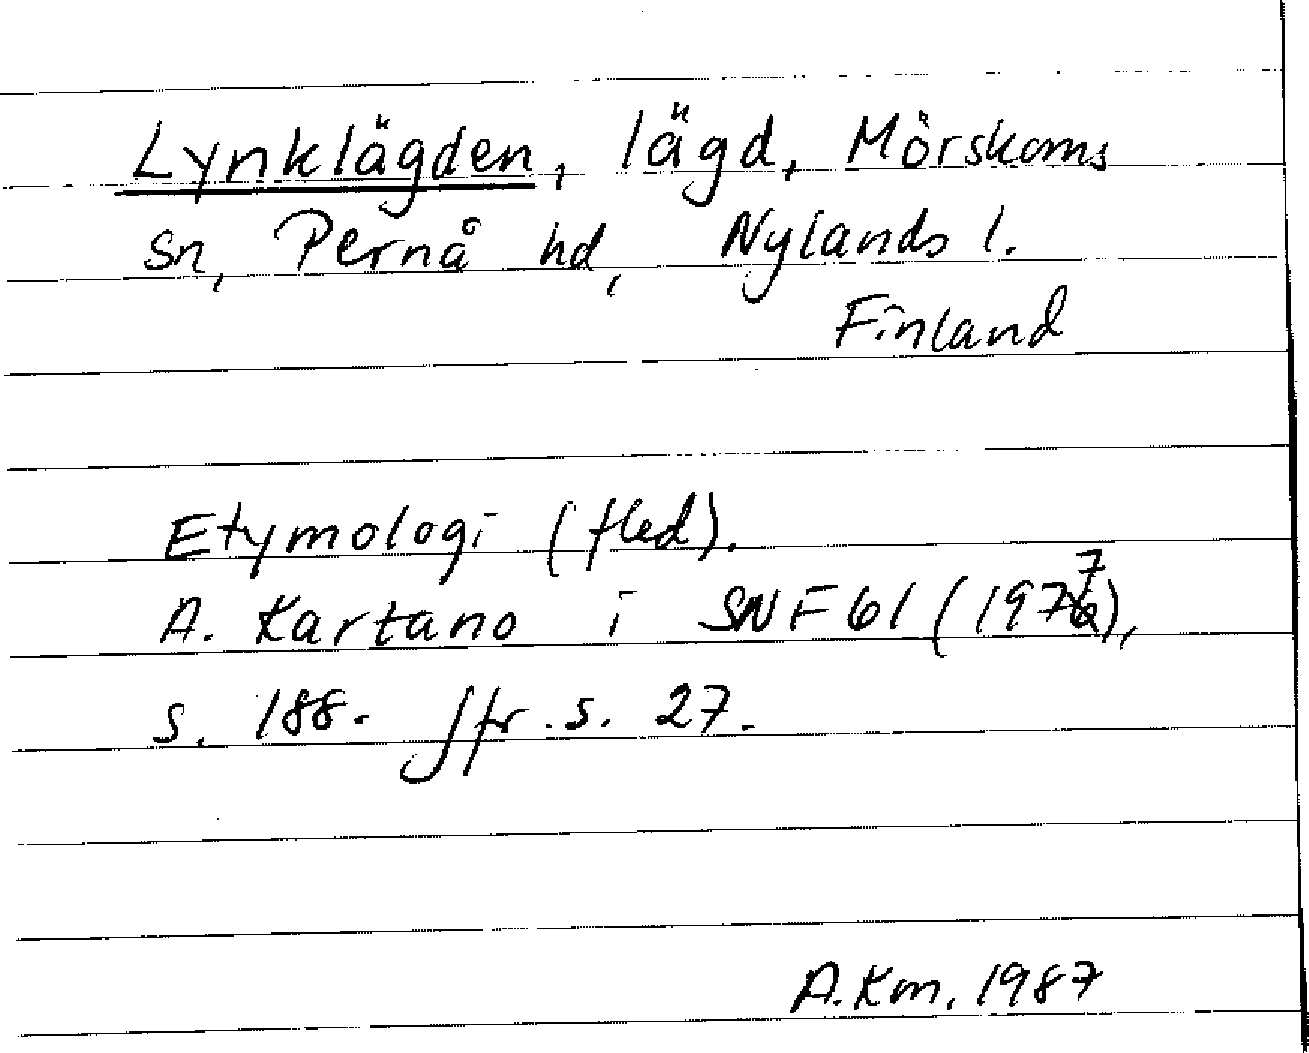 Lynklägden, lägd, Mörskoms
sn, Pernå hd, Nylands l.
Finland
Etymologi (fled).
A. Kartano i SNF 61 (1977),
s. 188. Jfr s. 27.
A.Km. 1987